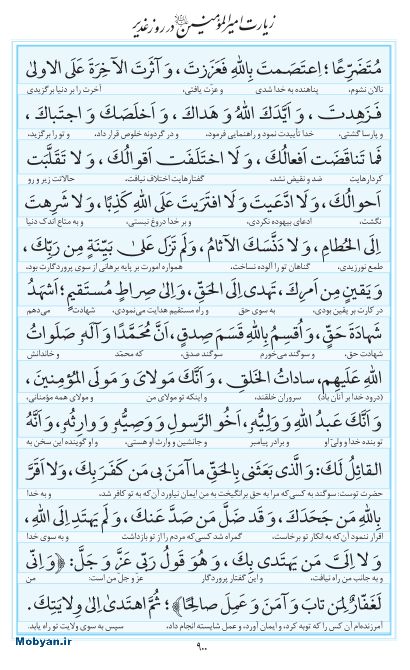 زیارت امیرالمؤمنین در روز غدیر
مُتَضَرِّعًا؛ اِعتَصَمتَ بِاللهِ فَعَزَزتَ، وَ آثَرتَ الآخِرَةَ عَلَى الاولىٰ
نالان نشوم، پناهنده به خدا شدی و عزّت یافتی، آخرت را بر دنیا برگزیدی
فَزَهِدتَ، وَ اَيَّدَكَ اللهُ وَ هَداكَ، وَ اَخلَصَكَ وَ اجتَباكَ،
و پارسا گشتی، خدا تأییدت نمود و راهنمایی فرمود، و در گردونه خلوص قرار داد، و تو را برگزید.
فَما تَناقَضَت اَفعالُكَ، وَ لَا اختَلَفَت اَقوالُكَ، وَ لا تَقَلَّبَت
کردارهایت ضد و نقیض نشد، گفتارهایت اختلاف نیافت، حالاتت زیر و رو
اَحوالُكَ، وَ لَا ادَّعَيتَ وَ لَا افتَرَيتَ عَلَى اللهِ كَذِبًا، وَ لا شَرِهتَ
نگشت، ادعای بیهوده نکردی، و بر خدا دروغ نبستی، و به متاع اندک دنیا
اِلَى الحُطامِ، وَ لا دَنَّسَكَ الآثامُ، وَ لَم تَزَل عَلىٰ بَيِّنَةٍ مِن رَبِّكَ،
طمع نورزیدی، گناهان تو را آلوده نساخت، همواره امورت بر پایه برهانی از سوی پروردگارت بود،
وَ يَقينٍ مِن اَمرِكَ، تَهدى اِلَى الحَقِّ، وَ اِلىٰ صِراطٍ مُستَقيمٍ؛ اَشهَدُ
در کارت بر یقین بودی، به سوی حق و راه مستقیم هدایت می‌نمودی، شهادت می‌دهم
شَهادَةَ حَقٍّ، وَ اُقسِمُ بِاللهِ قَسَمَ صِدقٍ، اَنَّ مُحَمَّدًا وَ آلَهُ صَلَواتُ
شهادت حق، و سوگند به خدا می‌خورم سوگند صدق، که محمّد و خاندانش
اللهِ عَلَيهِم، ساداتُ الخَلقِ، وَ اَنَّكَ مَولاىَ وَ مَولَى المُؤمِنينَ،
(درود خدا بر آنان باد) سروران خلقند، و اینکه تو مولای من و مولای همه مؤمنانی،
وَ اَنَّكَ عَبدُ اللهِ وَ وَلِيُّهُ، وَ اَخُو الرَّسولِ وَ وَصِيُّهُ وَ وارِثُهُ، وَ اَنَّهُ
تو بنده خدا و ولیّ او و برادر پیامبر و جانشین و وارث او هستی، و او گوینده این سخن به
القائِلُ لَكَ: وَ الَّذى بَعَثَنى بِالحَقِّ ما آمَنَ بى مَن كَفَرَ بِكَ، وَ لا اَقَرَّ
حضرت توست: سوگند به کسی که مرا به حق برانگیخت به من ایمان نیاورد آن که به تو کافر شد، و به خدا
بِاللهِ مَن جَحَدَكَ، وَ قَد ضَلَّ مَن صَدَّ عَنكَ، وَ لَم يَهتَدِ اِلَى اللهِ،
اقرار ننمود آن که به انکار تو برخاست، گمراه شد کسی که مردم را از تو بازداشت و به سوی خدا
وَ لا اِلَىَّ مَن لا يَهتَدى بِكَ، وَ هُوَ قَولُ رَبّى عَزَّ وَ جَلَّ: ﴿وَ اِنّى
و به جانب من راه نیافت، و این گفتار پروردگار عزّ و جلّ من است: من
لَغَفّارٌ لِمَن تابَ وَ آمَنَ وَ عَمِلَ صالِحًا﴾؛ ثُمَّ اهتَدىٰ اِلىٰ وِلايَتِكَ.
آمرزنده‌ام آن کس را که توبه کرد، و ایمان آورد، و عمل شایسته انجام داد، سپس به سوی ولایت تو راه یابد.
Mobyan.ir
۹۰۰